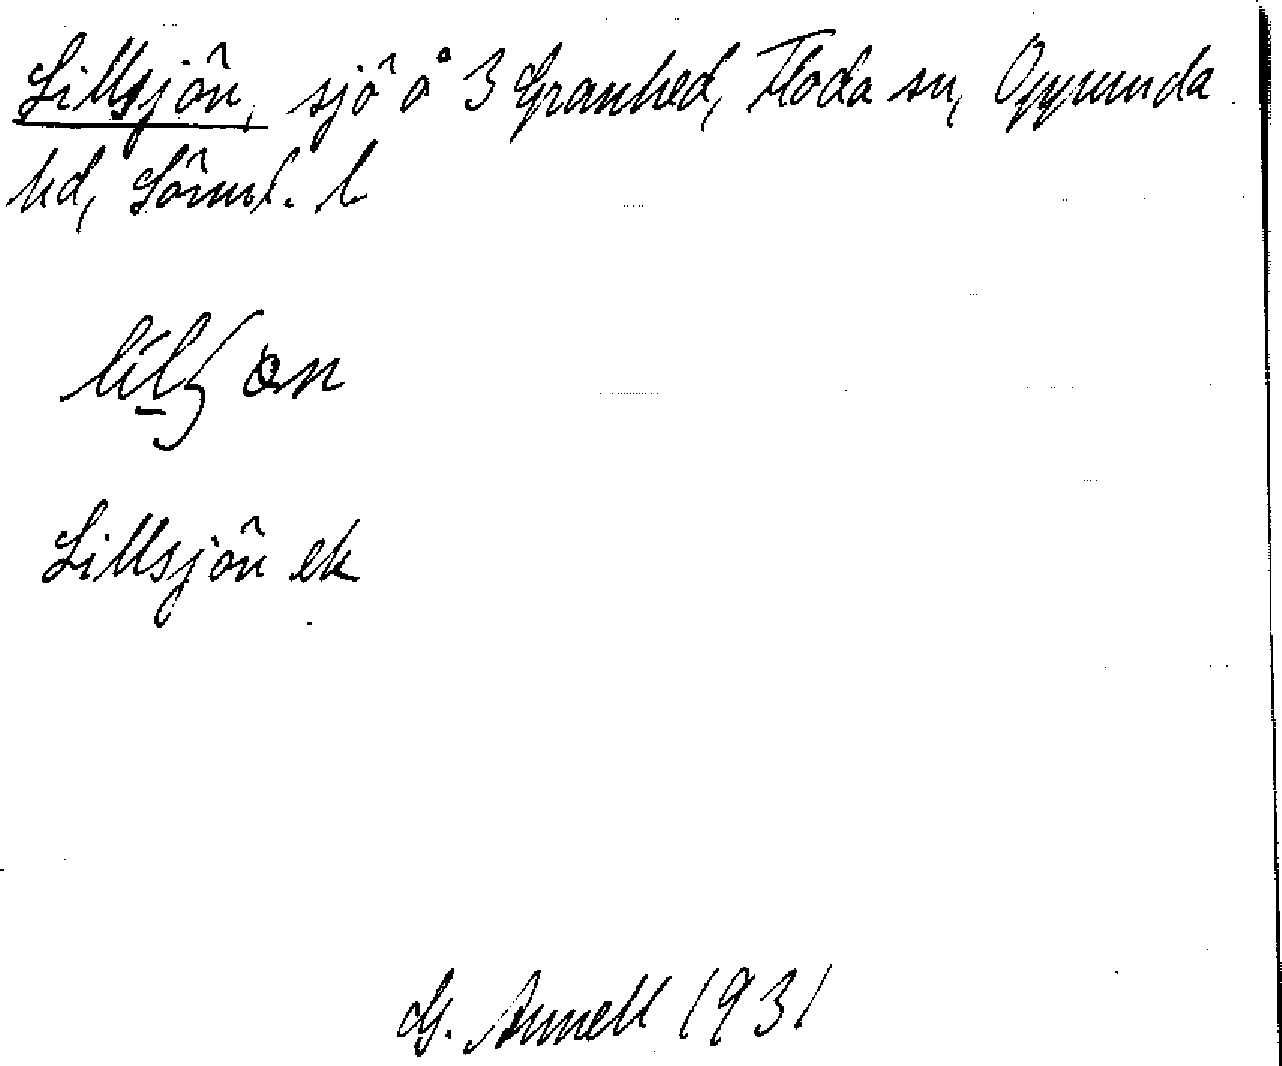 Lillsjön, sjö å 3 Granhed, Floda sn, Oppunda
hd, Sörml. l
Lillsjön ek
G. Annell 1931